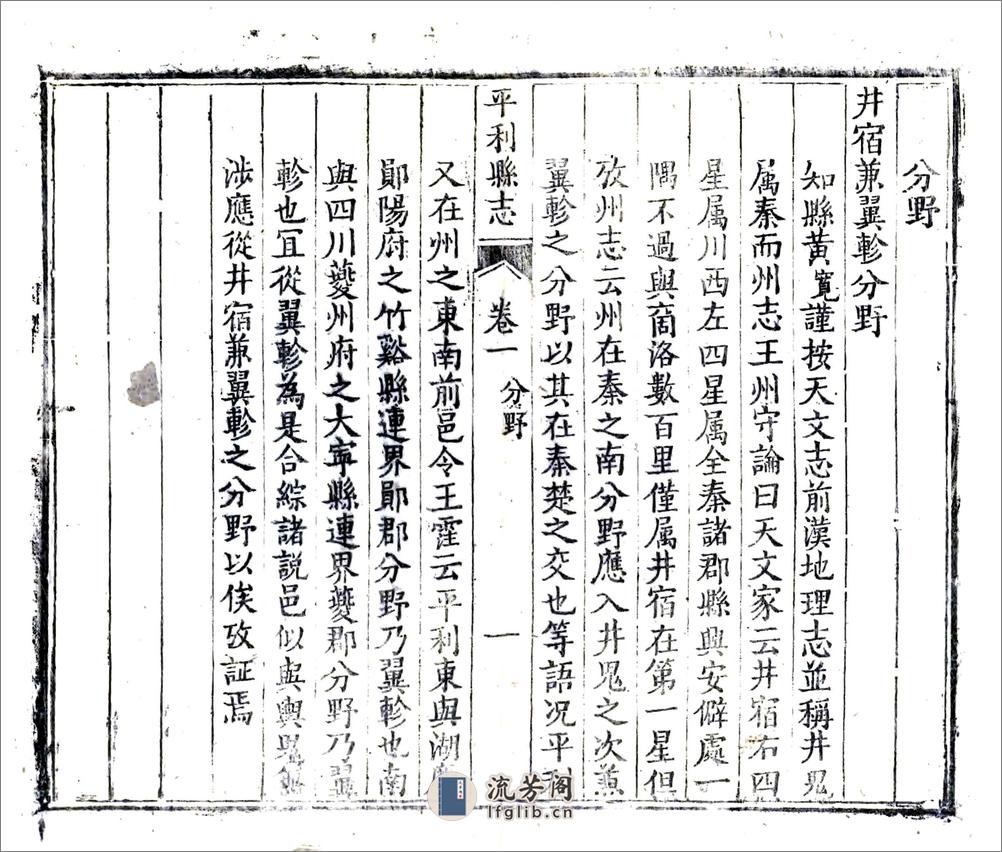 分野
井宿兼翼軫分野
知縣黃寬謹按天文志前漢地理志並稱井鬼
属秦而州志王州守論曰天文家云井宿右四
星属川西左四星属全秦諸郡縣興安僻處一
隅不過與商洛數百里僅属井宿在第一星但
攷州志云州在秦之南分野應入井鬼之次兼
翼軫之分野以其在秦楚之交也等語况平利
平利縣志
卷一
分野
一
又在州之東南前邑令王霍云平利東與湖廣
鄖陽府之竹谿縣連界鄖郡分野乃翼軫也南
與四川夔州府之大寧縣連界夔郡分野乃翼
軫也冝從翼軫為是合綜諸説邑似與輿鬼無
涉應從井宿兼翼軫之分野以俟攷証焉
流芳阁
lfglib.cn